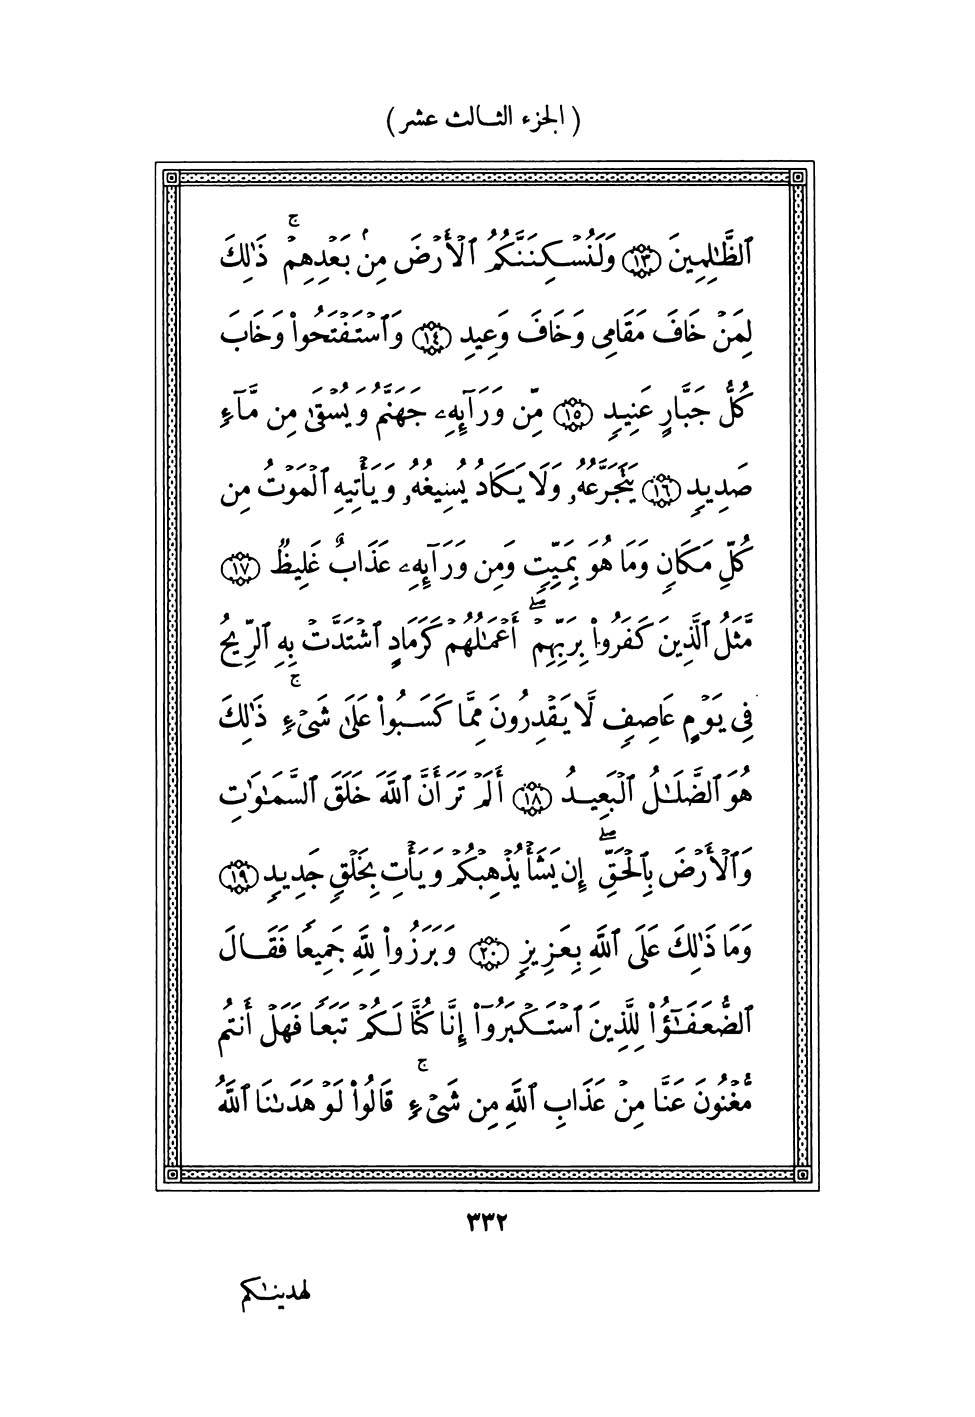 (الجزء الثالث عشر)
ٱلظَّٰلِمِينَ ١٣ وَلَنُسۡكِنَنَّكُمُ ٱلۡأَرۡضَ مِنۢ بَعۡدِهِمۡۚ ذَٰلِكَ
لِمَنۡ خَافَ مَقَامِى وَخَافَ وَعِيدِ ١٤ وَٱسۡتَفۡتَحُواْ وَخَابَ
كُلُّ جَبَّارٍ عَنِيدٖ ١٥ مِّن وَرَآئِهِۦ جَهَنَّمُ وَيُسۡقَىٰ مِن مَّآءٖ
صَدِيدٖ ١٦ يَتَجَرَّعُهُۥ وَلَا يَكَادُ يُسِيغُهُۥ وَيَأۡتِيهِ ٱلۡمَوۡتُ مِن
كُلِّ مَكَانٖ وَمَا هُوَ بِمَيِّتٖ وَمِن وَرَآئِهِۦ عَذَابٌ غَلِيظٞ ١٧
مَّثَلُ ٱلَّذِينَ كَفَرُواْ بِرَبِّهِمۡۖ أَعۡمَٰلُهُمۡ كَرَمَادٍ ٱشۡتَدَّتۡ بِهِ ٱلرِّيحُ
فِى يَوۡمٍ عَاصِفٖ لَّا يَقۡدِرُونَ مِمَّا كَسَبُواْ عَلَىٰ شَىۡءٖۚ ذَٰلِكَ
هُوَ ٱلضَّلَٰلُ ٱلۡبَعِيدُ ١٨ أَلَمۡ تَرَ أَنَّ ٱللَّهَ خَلَقَ ٱلسَّمَٰوَٰتِ
وَٱلۡأَرۡضَ بِٱلۡحَقِّۖ إِن يَشَأۡ يُذۡهِبۡكُمۡ وَيَأۡتِ بِخَلۡقٖ جَدِيدٖ ١٩
وَمَا ذَٰلِكَ عَلَى ٱللَّهِ بِعَزِيزٖ ٢٠ وَبَرَزُواْ لِلَّهِ جَمِيعٗا فَقَالَ
ٱلضُّعَفَٰٓؤُاْ لِلَّذِينَ ٱسۡتَكۡبَرُوٓاْ إِنَّا كُنَّا لَكُمۡ تَبَعٗا فَهَلۡ أَنتُم
مُّغۡنُونَ عَنَّا مِنۡ عَذَابِ ٱللَّهِ مِن شَىۡءٖۚ قَالُواْ لَوۡ هَدَىٰنَا ٱللَّهُ
٣٣٢
لهدينٰكم